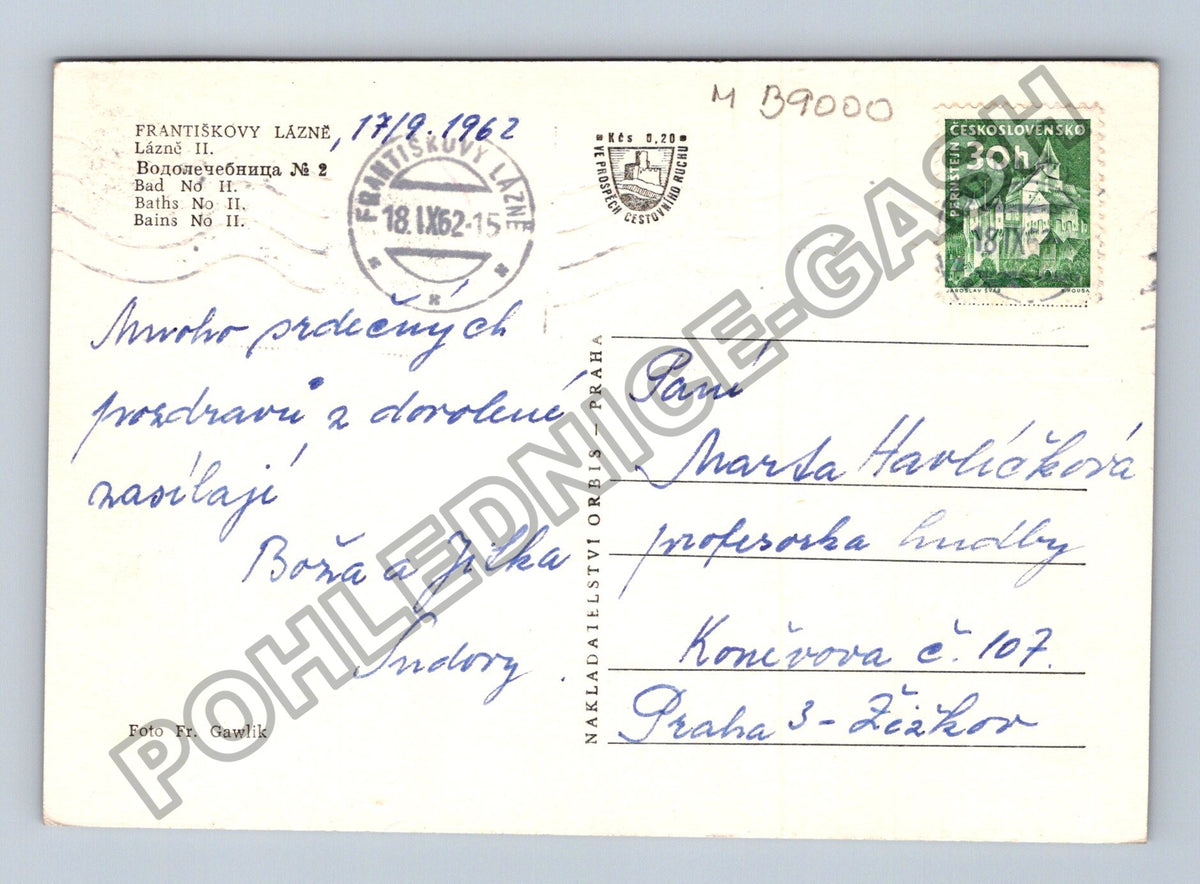 M B9000
FRANTIŠKOVY LÁZNĚ, 17/9. 1962
Lázně II.
Водолечебница № 2
Bad No II.
Baths No II.
Bains No II.
FRANTIŠKOVY LÁZNĚ
18.IX62-15
Kčs 0,20
VE PROSPĚCH CESTOVNÍHO RUCHU
ČESKOSLOVENSKO
30h
PERNŠTEJN
18.IX6
JAROSLAV ŠVÁB
Mnoho srdečných
pozdravů z dovolené
zasílají
Boža a Jitka
Foto Fr. Gawlik
NAKLADATELSTVÍ ORBIS – PRAHA
Paní
Marta Havlíčková
profesorka hudby
Koněvova č. 107.
Praha 3 - Žižkov
POHLEDNICE-GASH